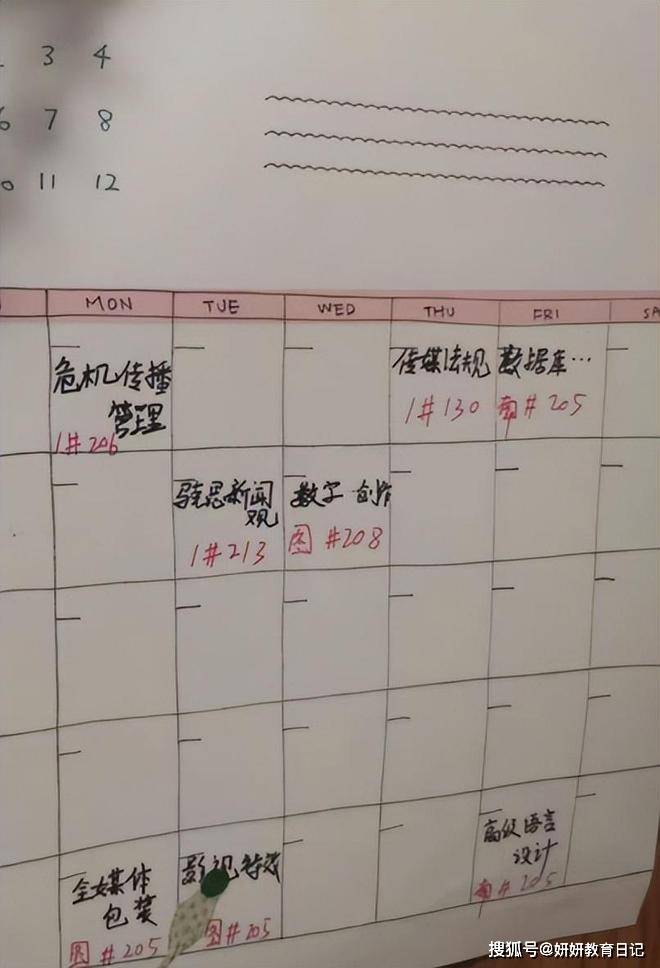 3 4
6 7 8
11 12
MON TUE WED THU FRI SA
危机传播
管理
1#206
传媒法规
1#130
数据库…
#205
马克思新闻
观
1#213
数字创作
图#208
全媒体
包装
图#205
影视特效
图#205
高级语言
设计
#205
搜狐号@妍妍教育日记